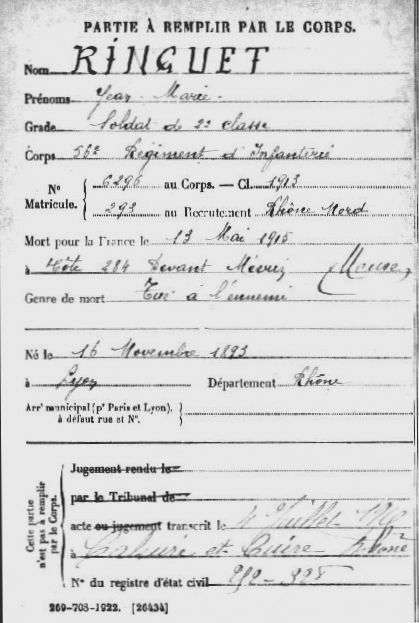 PARTIE À REMPLIR PAR LE CORPS.
Nom RINGUET
Prénoms Jean Marie
Grade Soldat de 2e classe
Corps 56e Régiment d'Infanterie
N° Matricule. { 6296 au Corps. — Cl. 1913
293 au Recrutement Rhône Nord
Mort pour la France le 13 Mai 1915
à Côte 284 Devant (Meuse)
Genre de mort Tué à l'ennemi
Né le 16 Novembre 1893
à Lyon Département Rhône
Arrt municipal (pr Paris et Lyon),
à défaut rue et N°.
Cette partie n'est pas à remplir par le Corps.
Jugement rendu le
par le Tribunal de
acte ou jugement transcrit le Juillet
à Caluire et Cuire Rhône
N° du registre d'état civil
269-708-1922. [26434]